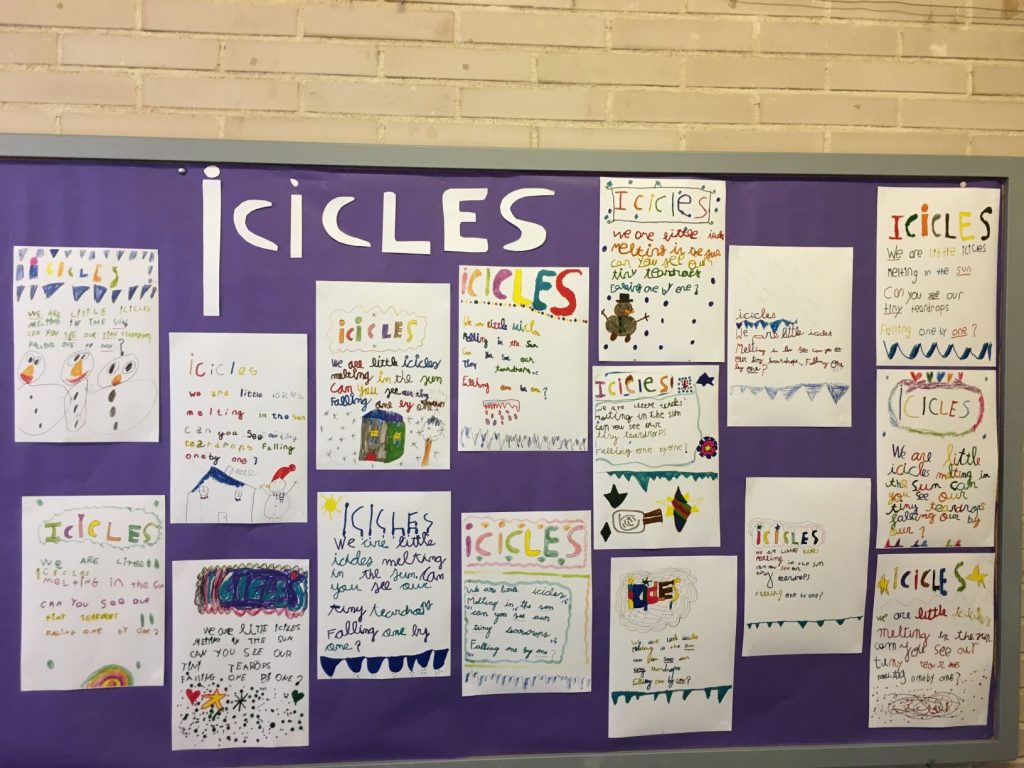 ICICLES
ICICLES
WE ARE LITTLE ICICLES
MELTING IN THE SUN
CAN YOU SEE OUR TINY TEARDROPS
FALLING ONE BY ONE ?
ICICLES
WE ARE LITTLE
ICICLES
MELTING IN THE SUN
CAN YOU SEE OUR
TINY
FALLING ONE BY ONE ?
Icicles
we are little icicles
melting in the sun
Can you see our tiny
teardrops falling
one by one ?
ICICLES
WE ARE LITTLE ICICLES
MELTING IN THE SUN
CAN YOU SEE OUR
TINY TEAROPS
FALLING ONE BY ONE?
icicles
We are little icicles
melting in the sun
Can you see our tiny
Falling one by one
ICICLES
We are little
icicles melting
in the sun. Can
you see our
tiny teardrops
Falling one by
one ?
iCiCLES
We are little
Melting in the sun
Can you see our
Tiny teardrops
Falling one by one?
iCiCLES
We are little icicles
Melting in the sun
can you see our
tiny teardrops
Falling one by one ?
Icicles
We are little
Melting in the sun
can you see our
tiny teardrops
one by one ?
Icicles!
We are little
Melting in the sun
Can you see our
tiny teardrops
Falling one by one !
ICICLES
We are little icicles
Melting in the sun
can you see our
teardrops
Falling one by one ?
icicles
We are little icicles
Melting in the see can you see
our tiny teardrop. Falling One
by one ?
icicles
we are little
melting in the sun
can you see our
tiny teardrops
Falling one by one ?
ICICLES
We are little icicles
Melting in the sun
Can you see our
tiny teardrops
Falling one by one ?
ICICLES
We are little
icicles melting in
the sun can
you see our
tiny teardrops
falling our by
our ?
ICICLES
we are little icicles
melting in the sun
can you see our
tiny
one by one ?